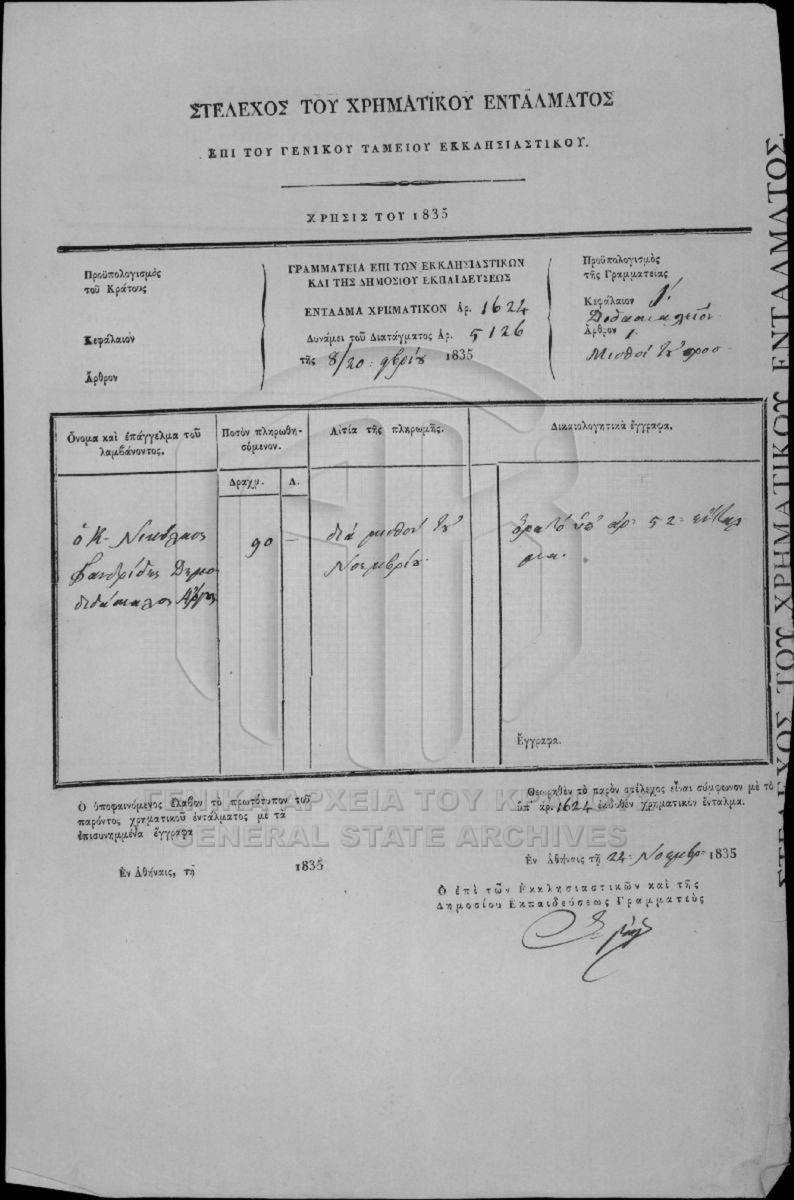 ΣΤΕΛΕΧΟΣ ΤΟΥ ΧΡΗΜΑΤΙΚΟΥ ΕΝΤΑΛΜΑΤΟΣ
ΕΠΙ ΤΟΥ ΓΕΝΙΚΟΥ ΤΑΜΕΙΟΥ ΕΚΚΛΗΣΙΑΣΤΙΚΟΥ.
ΧΡΗΣΙΣ ΤΟΥ 1835
Προϋπολογισμὸς
τοῦ Κράτους
Κεφάλαιον
Ἄρθρον
ΓΡΑΜΜΑΤΕΙΑ ΕΠΙ ΤΩΝ ΕΚΚΛΗΣΙΑΣΤΙΚΩΝ
ΚΑΙ ΤΗΣ ΔΗΜΟΣΙΟΥ ΕΚΠΑΙΔΕΥΣΕΩΣ
ΕΝΤΑΛΜΑ ΧΡΗΜΑΤΙΚΟΝ Ἀρ. 1624
Δυνάμει τοῦ Διατάγματος Ἀρ. 5126
τῆς 8/20 9βρίου 1835
Προϋπολογισμὸς
τῆς Γραμματείας
Κεφάλαιον
Διδασκαλεῖον
Ἄρθρον 1.
Μισθοὶ τοῦ προσ
Ὄνομα καὶ ἐπάγγελμα τοῦ
λαμβάνοντος.
Ποσὸν πληρωθη-
σόμενον.
Αἰτία τῆς πληρωμῆς.
Δικαιολογητικὰ ἔγγραφα.
Δραχμ. Λ.
ὁ Κ. Νικόλαος
Δημο
διδάσκαλος Ἄργους
90 —
διὰ μισθόν του
Νοεμβρίου
ὅρα τὸ ὑπ' ἀρ. 52 ἔνταλ
μα.
Ἔγγραφα.
Ὁ ὑποφαινόμενος ἔλαβον τὸ πρωτότυπον τοῦ
παρόντος χρηματικοῦ ἐντάλματος μὲ τὰ
ἐπισυνημμένα ἔγγραφα
Ἐν Ἀθήναις, τῇ 1835
Θεωρηθὲν τὸ παρὸν στέλεχος εἶναι σύμφωνον μὲ τὸ
ὑπ' ἀρ. 1624 ἐκδοθὲν χρηματικὸν ἔνταλμα.
Ἐν Ἀθήναις τῇ 22 Νοεμβρ. 1835
Ὁ ἐπὶ τῶν Ἐκκλησιαστικῶν καὶ τῆς
Δημοσίου Ἐκπαιδεύσεως Γραμματεὺς
ΓΕΝΙΚΑ ΑΡΧΕΙΑ ΤΟΥ Κ
GENERAL STATE ARCHIVES
ΣΤΕΛΕΧΟΣ ΤΟΥ ΧΡΗΜΑΤΙΚΟΥ ΕΝΤΑΛΜΑΤΟΣ